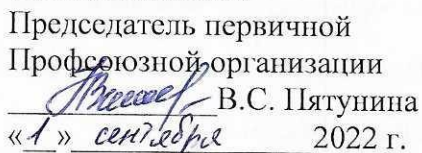 Председатель первичной
Профсоюзной организации
В.С. Пятунина
«1» сентября 2022 г.